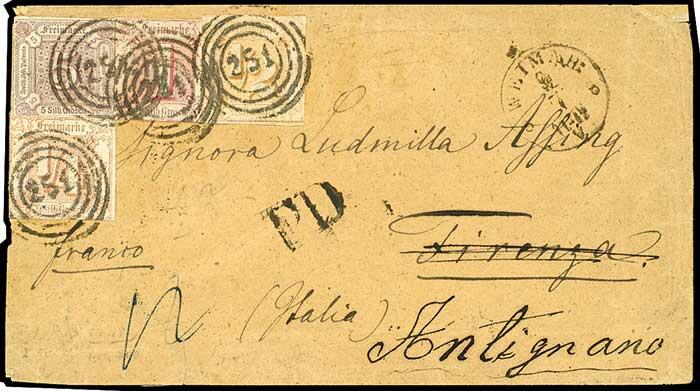 Freimarke
5 Silb. Grosch.
251
Freimarke
251
251
Freimarke
251
WEIMAR
Signora Ludmilla Assing
PD
Firenza.
franco
(Italia)
Antignano